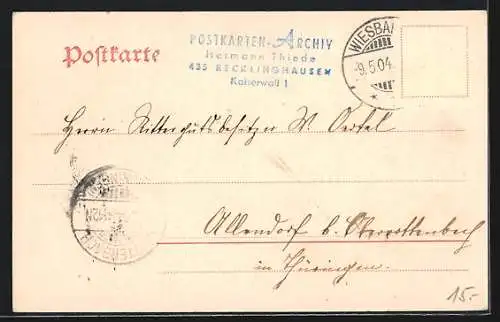 Postkarte
POSTKARTEN-ARCHIV
Hermann Thiede
435 RECKLINGHAUSEN
Kaiserwall 1
WIESBA
9.5.04.
Herrn Rittergutsbesitzer W. Oertel
Allendorf b. Oberrottenbach
in Thüringen.
15.-